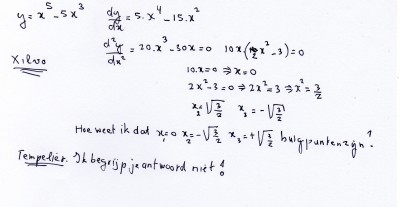 y = x⁵ - 5x³ dy/dx = 5.x⁴ - 15.x²
d²y/dx² = 20.x³ - 30x = 0 10x(2x² - 3) = 0
Xilvo
10.x = 0 ⇒ x = 0
2x² - 3 = 0 ⇒ 2x² = 3 ⇒ x² = 3/2
x₂ = √3/2 x₃ = -√3/2
Hoe weet ik dat x₁=0 x₂ = -√3/2 x₃ = +√3/2 buigpunten zijn?
Tempelier. Ik begrijp je antwoord niet!